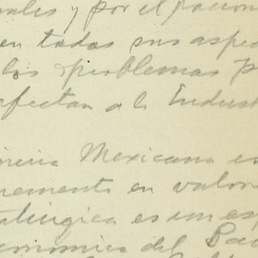 ales y por el racion
en todos sus aspec
los problemas p
afectan a la Indust
ineria Mexicana es
remento en valor
alúrgica es un es
conomica del Paí